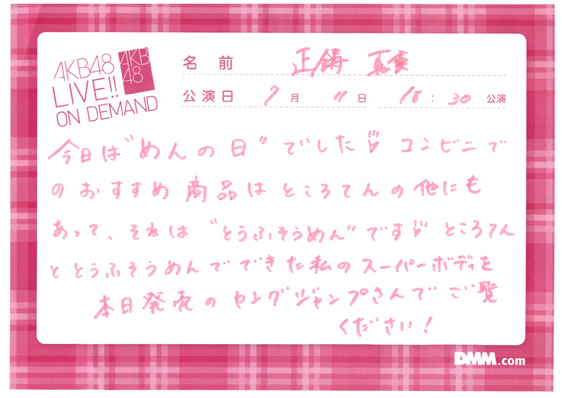 AKB48
LIVE!!
ON DEMAND
AKB
48
名 前 正鋳 真実
公演日 7月 11日 18:30 公演
今日は"めんの日"でした コンビニで
のおすすめ商品はところてんの他にも
あって、それは"とうふそうめん"です ところてん
ととうふそうめんでできた私のスーパーボディを
本日発売のヤングジャンプさんでご覧
ください!
DMM.com